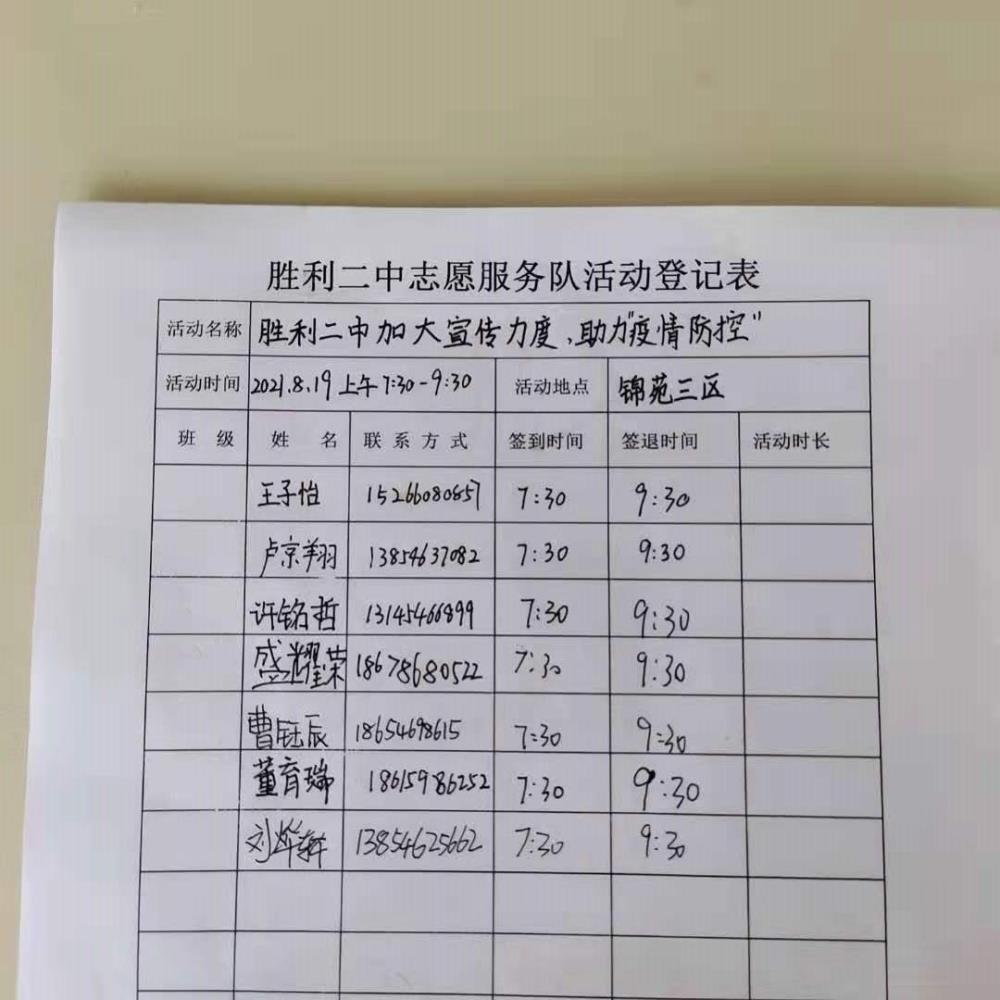 胜利二中志愿服务队活动登记表
活动名称 胜利二中加大宣传力度、助力"疫情防控"
活动时间 2021.8.19 上午7:30-9:30 活动地点 锦苑三区
班 级 姓 名 联系方式 签到时间 签退时间 活动时长
王子怡 15266080857 7:30 9:30
卢京翔 13854637082 7:30 9:30
许铭哲 13145466899 7:30 9:30
盛耀荣 18678680522 7:30 9:30
曹钰辰 18654698615 7:30 9:30
董育瑞 18615986252 7:30 9:30
刘烨轩 13854625662 7:30 9:30